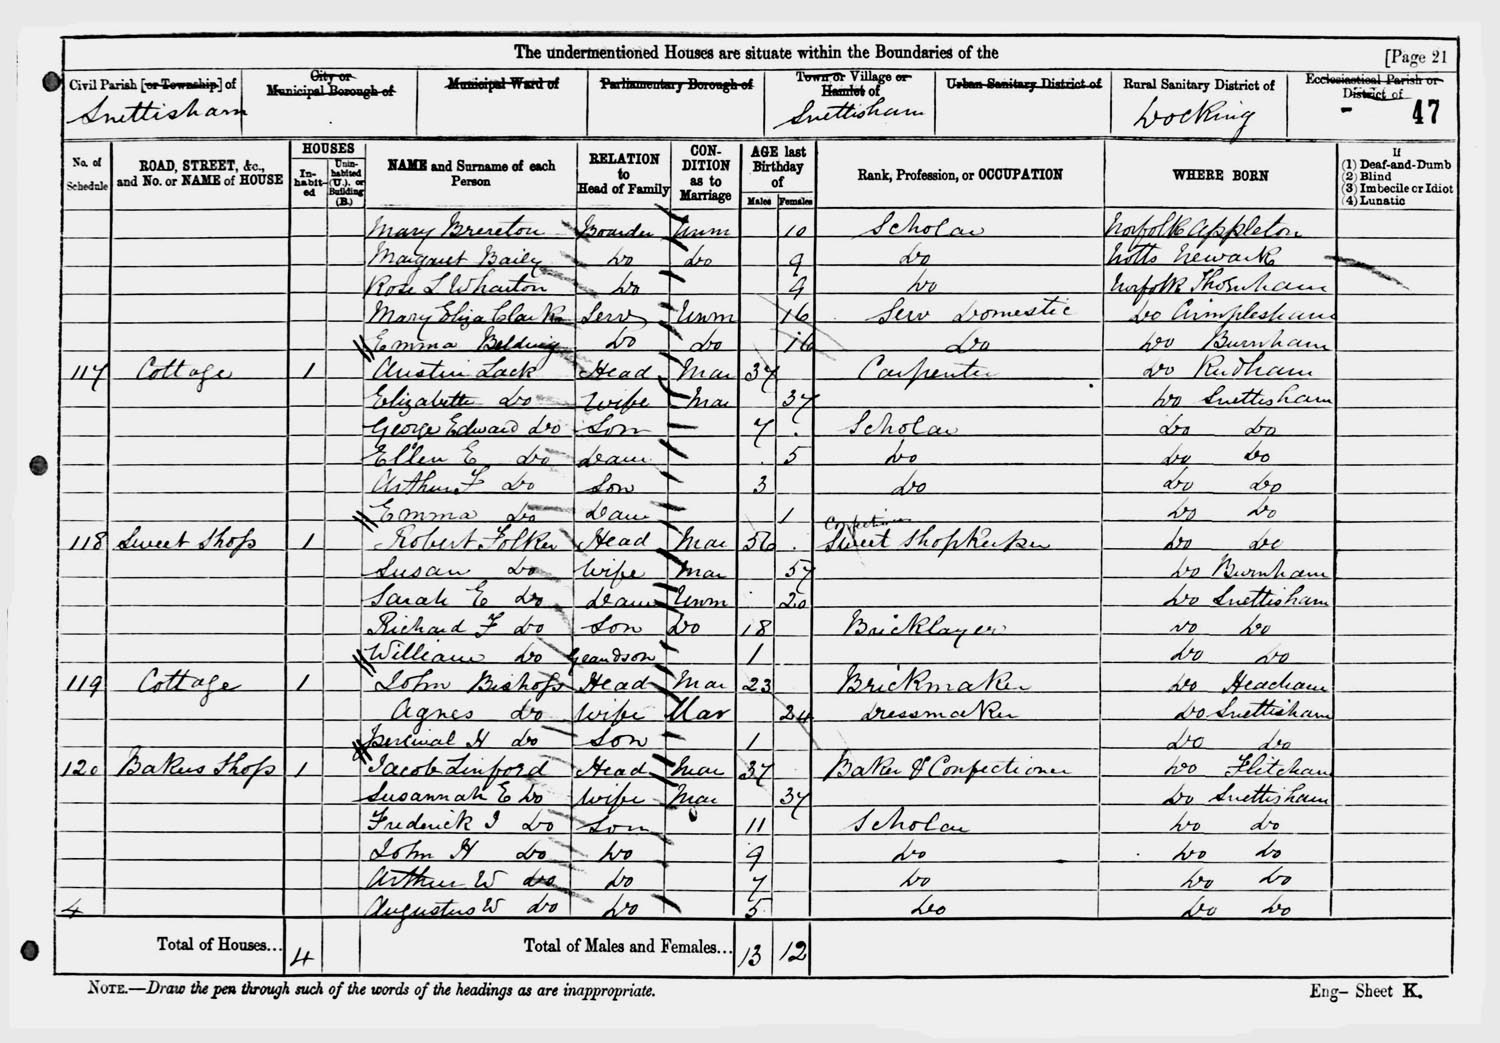 The undermentioned Houses are situate within the Boundaries of the
[Page 21
Civil Parish [or Township] of
City or Municipal Borough of
Municipal Ward of
Parliamentary Borough of
Town or Village or Hamlet of
Urban Sanitary District of
Rural Sanitary District of
Ecclesiastical Parish or District of
Snettisham
Snettisham
Docking
- 47
No. of Schedule
ROAD, STREET, &c., and No. or NAME of HOUSE
HOUSES
In-habit-ed
Unin-habited (U.), or Building (B.)
NAME and Surname of each Person
RELATION to Head of Family
CON-DITION as to Marriage
AGE last Birthday of
Males
Females
Rank, Profession, or OCCUPATION
WHERE BORN
If
(1) Deaf-and-Dumb
(2) Blind
(3) Imbecile or Idiot
(4) Lunatic
Mary Brereton Boarder Unm 10 Scholar Norfolk Appleton
Margaret Baily Do Do 9 Do Notts Newark
Rose L Wharton Do 9 Do Norfolk Thornham
Mary Eliza Clark Serv Unm 16 Serv Domestic Do Crimplesham
Emma Belding Do Do 16 Do Do Burnham
117 Cottage 1 Austin Lack Head Mar 37 Carpenter Do Rudham
Elizabeth Do Wife Mar 37 Do Snettisham
George Edward Do Son 7 Scholar Do Do
Ellen E Do Daur 5 Do Do Do
Arthur F Do Son 3 Do Do Do
Emma Do Daur 1 Do Do
118 Sweet Shop 1 Robert Folker Head Mar 56 Sweet Shopkeeper Do Do
Susan Do Wife Mar 57 Do Burnham
Sarah E Do Daur Unm 20 Do Snettisham
Richard F Do Son Do 18 Bricklayer Do Do
William Do Grandson 1 Do Do
119 Cottage 1 John Bishop Head Mar 23 Brickmaker Do Heacham
Agnes Do Wife Mar 24 Dressmaker Do Snettisham
Percival H Do Son 1 Do Do
120 Bakers Shop 1 Jacob Linford Head Mar 37 Baker & Confectioner Do Flitcham
Susannah E Do Wife Mar 37 Do Snettisham
Frederick J Do Son 11 Scholar Do Do
John H Do Do 9 Do Do Do
Arthur W Do Do 7 Do Do Do
4 Augustus W Do Do 5 Do Do Do
Total of Houses... 4 Total of Males and Females... 13 12
NOTE.—Draw the pen through such of the words of the headings as are inappropriate.
Eng- Sheet K.